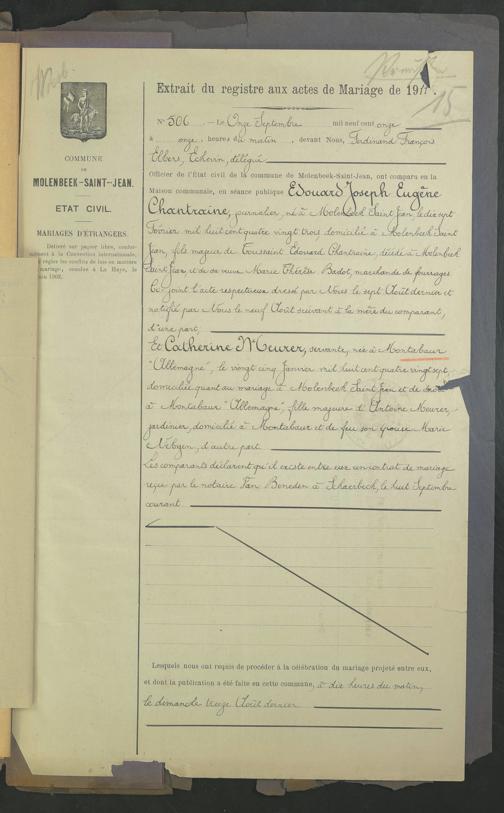 Extrait du registre aux actes de Mariage de 1911.
15
N° 506 — Le Onze Septembre mil neuf cent onze
à onze, heures du matin, devant Nous, Ferdinand François
Elbers, Echevin, délégué
Officier de l'état civil de la commune de Molenbeek-Saint-Jean, ont comparu en la
Maison communale, en séance publique Edouard Joseph Eugène
Chantraine, journalier, né à Molenbeek Saint Jean, le dix sept
Février mil huit cent quatre vingt trois, domicilié à Molenbeek Saint
Jean, fils majeur de Toussaint Edouard Chantraine, décédé à Molenbeek
Saint Jean et de sa veuve Marie Thérèse Bodot, marchande de fourrages
Ci-joint l'acte respectueux dressé par Nous le sept Août dernier et
notifié par Nous le neuf Août suivant à la mère du comparant,
d'une part,
Et Catherine Meurer, servante, née à Montabaur
"Allemagne", le vingt cinq Janvier mil huit cent quatre vingt sept
domiciliée quant au mariage à Molenbeek Saint Jean et de
à Montabaur "Allemagne", fille majeure d'Antoine Meurer,
jardinier, domicilié à Montabaur et de feu son épouse Marie
, d'autre part
Les comparants déclarent qu'il existe entre eux un contrat de mariage
reçu par le notaire Van Beneden à Schaerbeek, le huit Septembre
courant
Lesquels nous ont requis de procéder à la célébration du mariage projeté entre eux,
et dont la publication a été faite en cette commune, à dix heures du matin,
le dimanche treize Août dernier
COMMUNE
DE
MOLENBEEK-SAINT-JEAN.
ETAT CIVIL.
MARIAGES D'ÉTRANGERS.
Délivré sur papier libre, confor-
mément à la Convention internationale,
régler les conflits de lois en matière
mariage, conclue à La Haye, le
1902.